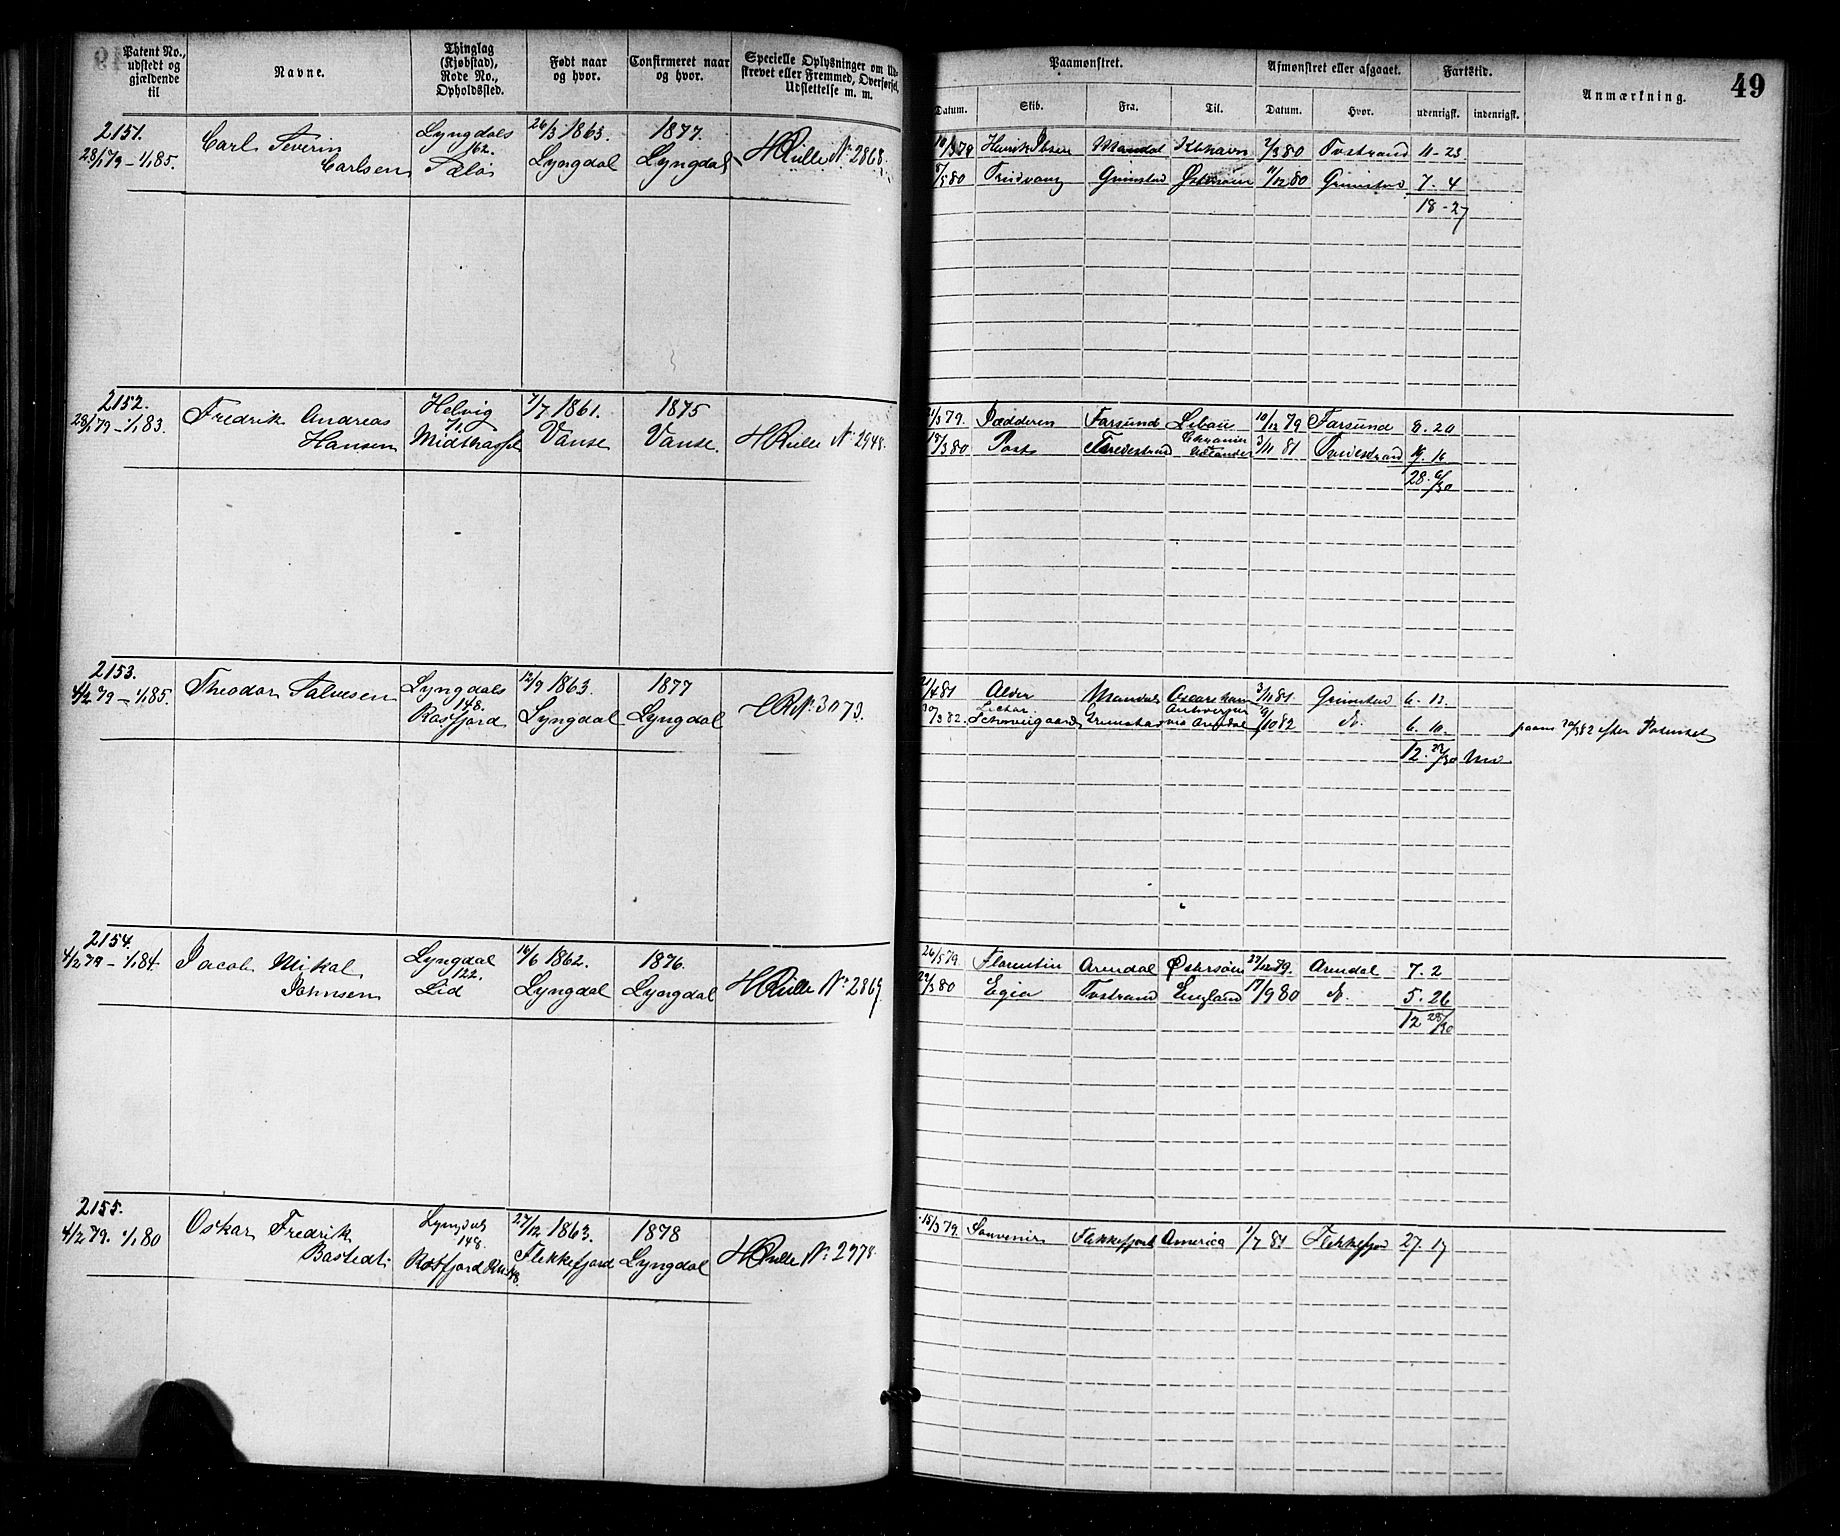 Patent No., udstedt og gjældende til
Navne.
Thinglag (Kjøbstad), Rode No., Opholdssted.
Født naar og hvor.
Confirmeret naar og hvor.
Specielle Oplysninger om Udskrevet eller Fremmed, Overførsel, Udslettelse m. m.
Paamønstret.
Afmønstret eller afgaaet.
Fartstid.
Anmærkning.
49
Datum.
Skib.
Fra.
Til.
Datum.
Hvor.
udenrigsk.
indenrigsk.
2151.
28/1 79 – 1/1 85.
Carl Severin
Carlsen
Lyngdals
162.
26/3 1863.
Lyngdal
1877.
Lyngdal
HRulle No 2868.
10/3 79 Henrik Ibsen Mandal Kbhavn 2/3 80 Tvstrand 11-23
8/5 80 Trudvang Grimstad Østersøen 11/12 80 Grimstad 7-4
18-27
2152.
28/1 79 – 1/1 83.
Fredrik Andreas
Hansen
Helvig
71.
7/7 1861.
Vanse
1875
Vanse.
HRulle No 2948.
Farsund Libau 10/12 79 Farsund 8.20
18/3 80 3/11 81 Tvedestrand 19.16
28. 6/30
2153.
4/2 79 – 1/1 85.
Theodor Salvesen
Lyngdals
148.
Rosfjord
12/9 1863.
Lyngdal
1877
Lyngdal
HR No 3073.
21/4 81 Alder Mandal 3/11 81 Grimstad 6.13.
20/3 82 Schweigaard Grimstad via Arendal 9/10 82 do. 6.10.
12. 23/30
paam 20/3 82 efter Patentet
2154.
4/2 79 – 1/1 84.
Jacob Mikal
Johnsen
Lyngdal
122.
Lid
16/6 1862.
Lyngdal
1876.
Lyngdal
HRulle No 2869
26/5 79 Florentin Arendal Østersøen 27/12 79. Arendal 7.2
22/3 80 Egia Tvstrand England 17/9 80 do. 5.26
12 28/30
2155.
4/2 79. 1/1 80
Oskar Fredrik
Bastedt.
Lyngdal
148.
Rosfjord
27/12 1863.
Flekkefjord
1878
Lyngdal
HRulle No 2978.
15/3 79. Souvenir Flekkefjord America 1/7 81 Flekkefjord 27.17